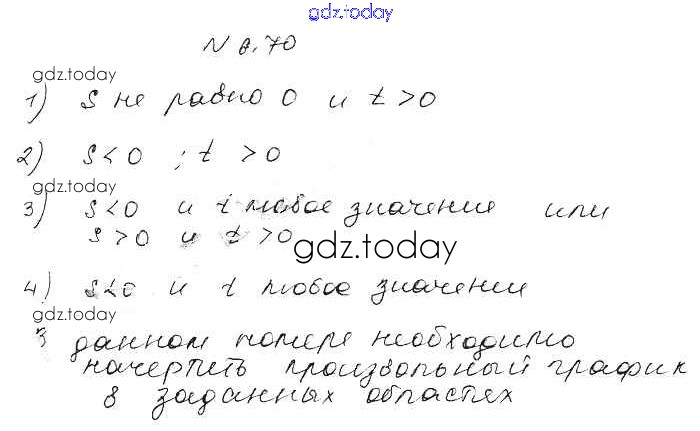 gdz.today
N 6.70
gdz.today
1) S не равно 0 и t > 0
2) S < 0 ; t > 0
gdz.today
3) S < 0 и t любое значение или
S > 0 и t > 0
gdz.today
4) S < 0 и t любое значении
gdz.today
В данном номере необходимо
начертить произвольный график
в заданных областях